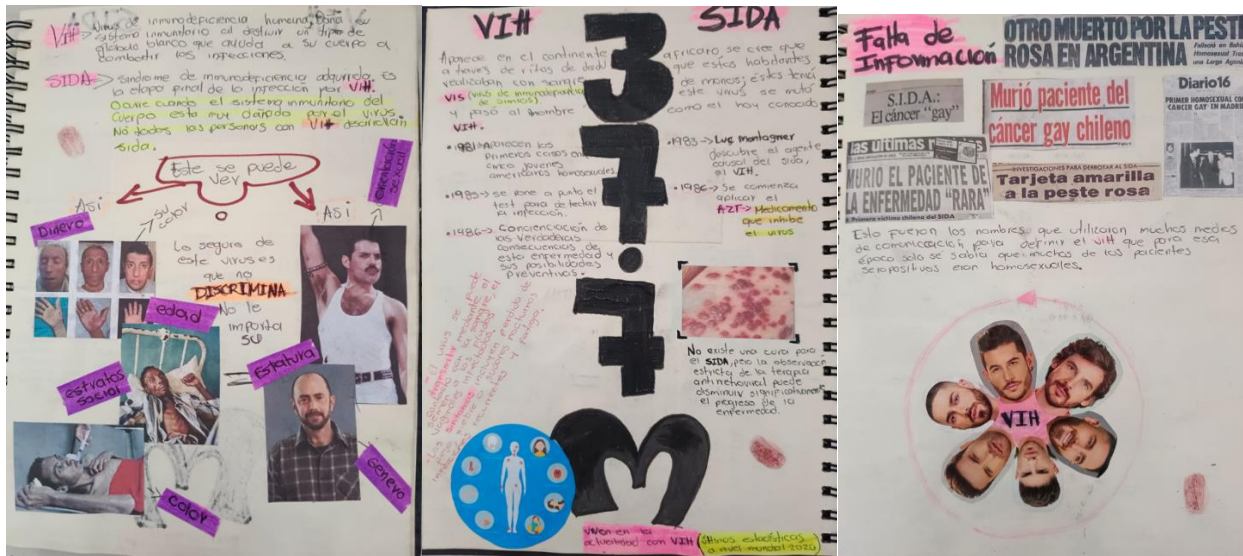 VIH → Virus de inmunodeficiencia humana, Daña su
sistema inmunitario al destruir un tipo de
glóbulo blanco que ayuda a su cuerpo a
combatir las infecciones.
SIDA → Sindrome de inmunodeficiencia adquirida. Es
la etapa final de la infección por VIH.
Ocurre cuando el sistema inmunitario del
cuerpo esta muy dañado por el virus
No todas las personas con VIH desarrollan
sida.
Este se puede
ver
Así
Así
orientación
sexual
Dinero
su color
Lo seguro de
este virus es
que no
DISCRIMINA
No le
importa
su
edad
estatura
estratos
social
Genero
color
VIH
SIDA
37.7
M
Aparece en el continente africano se cree que
a traves de ritos de que estos habitantes
realizaban con sangre de monos; éstos tenía
VIS (virus de inmunodeficiencia
de simios). este virus se mutó
y pasó al hombre como el hoy conocido
VIH.
•1981→ Aparecen los
primeros casos en
cinco jovenes
americanos homosexuales.
•1985→ se pone a punto el
test para detectar
la infección.
•1986→ Concienciación de
las verdaderas
consecuencias de
esta enfermedad y
sus posibilidades
preventivas.
•1983→ Luc montagner
descubre el agente
causal del sida,
el VIH.
•1986→ Se comienza
aplicar el
AZT→ Medicamento
que inhibe
el virus
•el virus se puede
transmitir mediante el
semen, la sangre, el
síntomas incluyen perdida de
sudores nocturnos
recurrentes y fatiga.
No existe una cura para
el SIDA, pero la observación
estricta de la terapia
antirretroviral puede
disminuir significativamente
el progreso de la
enfermedad.
viven en la
actualidad con VIH (últimas estadísticas
a nivel mundial 2020)
Falta de
Información
OTRO MUERTO POR LA PESTE
ROSA EN ARGENTINA
S.I.D.A.:
El cáncer "gay"
Murió paciente del
cáncer gay chileno
Diario16
PRIMER HOMOSEXUAL CON
CANCER GAY EN MADRID
las ultimas
MURIO EL PACIENTE DE
LA ENFERMEDAD "RARA"
Primera víctima chilena del SIDA
INVESTIGACIONES PARA DERROTAR AL SIDA
Tarjeta amarilla
a la peste rosa
Esto fueron los nombres que utilizaron muchos medios
de comunicación para definir el VIH que para esa
época solo se sabía que muchos de los pacientes
seropositivos eran homosexuales.
VIH